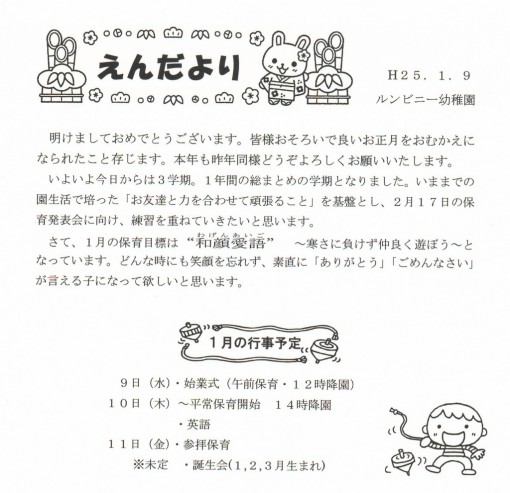 えんだより
H25.1.9
ルンビニー幼稚園
明けましておめでとうございます。皆様おそろいで良いお正月をおむかえに
なられたこと存じます。本年も昨年同様どうぞよろしくお願いいたします。
いよいよ今日からは3学期。1年間の総まとめの学期となりました。いままでの
園生活で培った「お友達と力を合わせて頑張ること」を基盤とし、2月17日の保
育発表会に向け、練習を重ねていきたいと思います。
わげんあいご
さて、1月の保育目標は“和顔愛語” ～寒さに負けず仲良く遊ぼう～と
なっています。どんな時にも笑顔を忘れず、素直に「ありがとう」「ごめんなさい」
が言える子になって欲しいと思います。
1月の行事予定
9日(水)・始業式(午前保育・12時降園)
10日(木)～平常保育開始 14時降園
・英語
11日(金)・参拝保育
※未定 ・誕生会(1,2,3月生まれ)